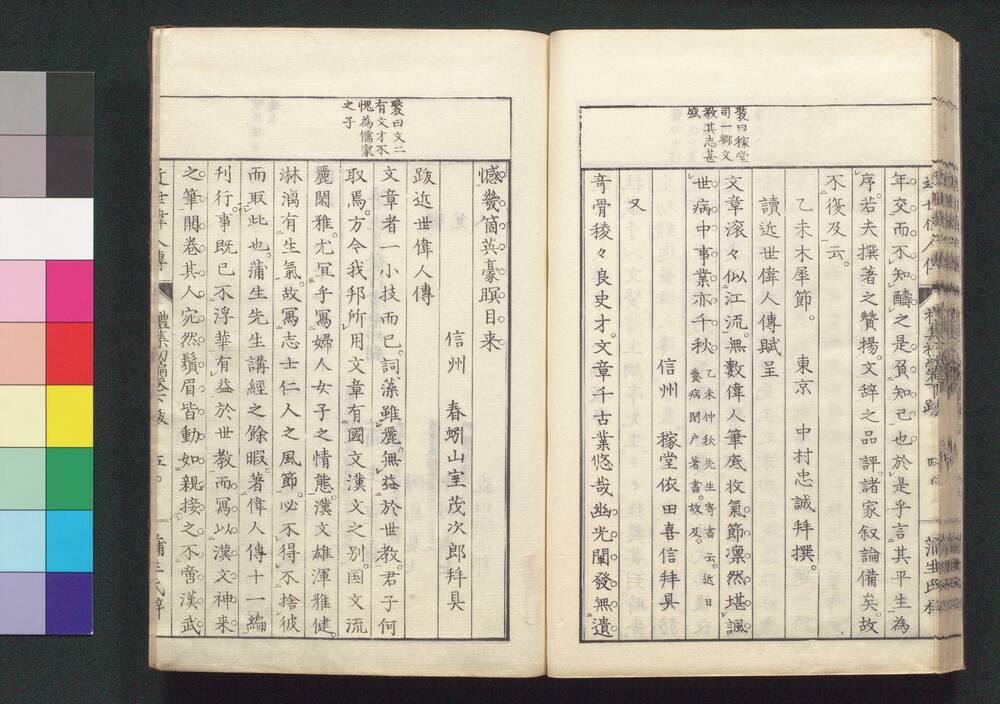 裴曰稼堂
司一鄉文
教其志甚
盛
年交而不知醻之是負知己也於是乎言其平生為
序若夫撰著之贊揚文辭之品評諸家叙論備矣故
不復及云。
乙未木犀節。 東京 中村忠誠拜撰。
讀近世偉人傳賦呈
文章滾々似江流無數偉人筆底收氣節凛然堪諷
世病中事業亦千秋 乙未仲秋先生寄書云近日
養病閉户著書故及。
信州 稼堂依田喜信拜具
又
奇骨稜々良史才文章千古業悠哉幽光闡發無遺
裴曰文二
有文才不
愧為儒家
之子
憾幾箇英豪瞑目来
信州 春蚓山室茂次郎拜具
跋近世偉人傳
文章者一小技而已詞藻雖麗無益於世教君子何
取焉方今我邦所用文章有國文漢文之別国文流
麗閑雅尤宜乎寫婦人女子之情態漢文雄渾雅健
淋漓有生氣故寫志士仁人之風節必不得不捨彼
而取此也蒲生先生講經之餘暇著偉人傳十一編
刊行事既已不浮華有益於世教而寫以漢文神来
之筆開卷其人宛然鬚眉皆動如親接之不啻漢武
近世偉人傳 禮集初編卷下跋 五 蒲生氏梓